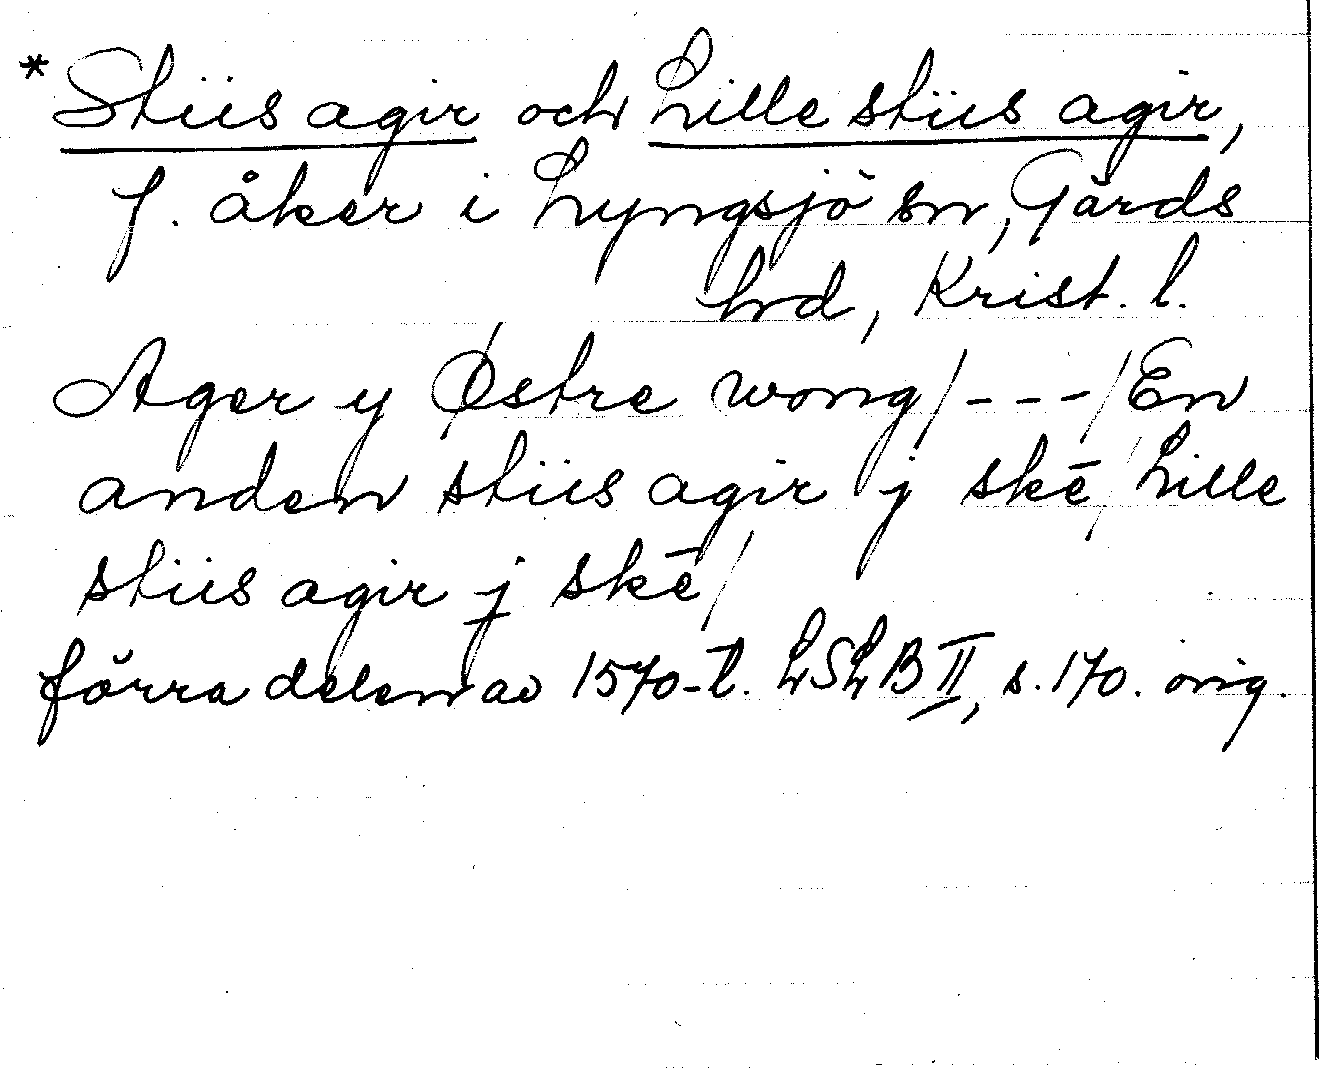 *Stiis agir och Lille stiis agir,
f. åker i Lyngsjö sn, Gärds
hd, Krist. l.
Ager y Østre wong/---/En
anden stiis agir j skē/Lille
stiis agir j skē/
förra delen av 1570-t. LSLB II, s. 170. orig.